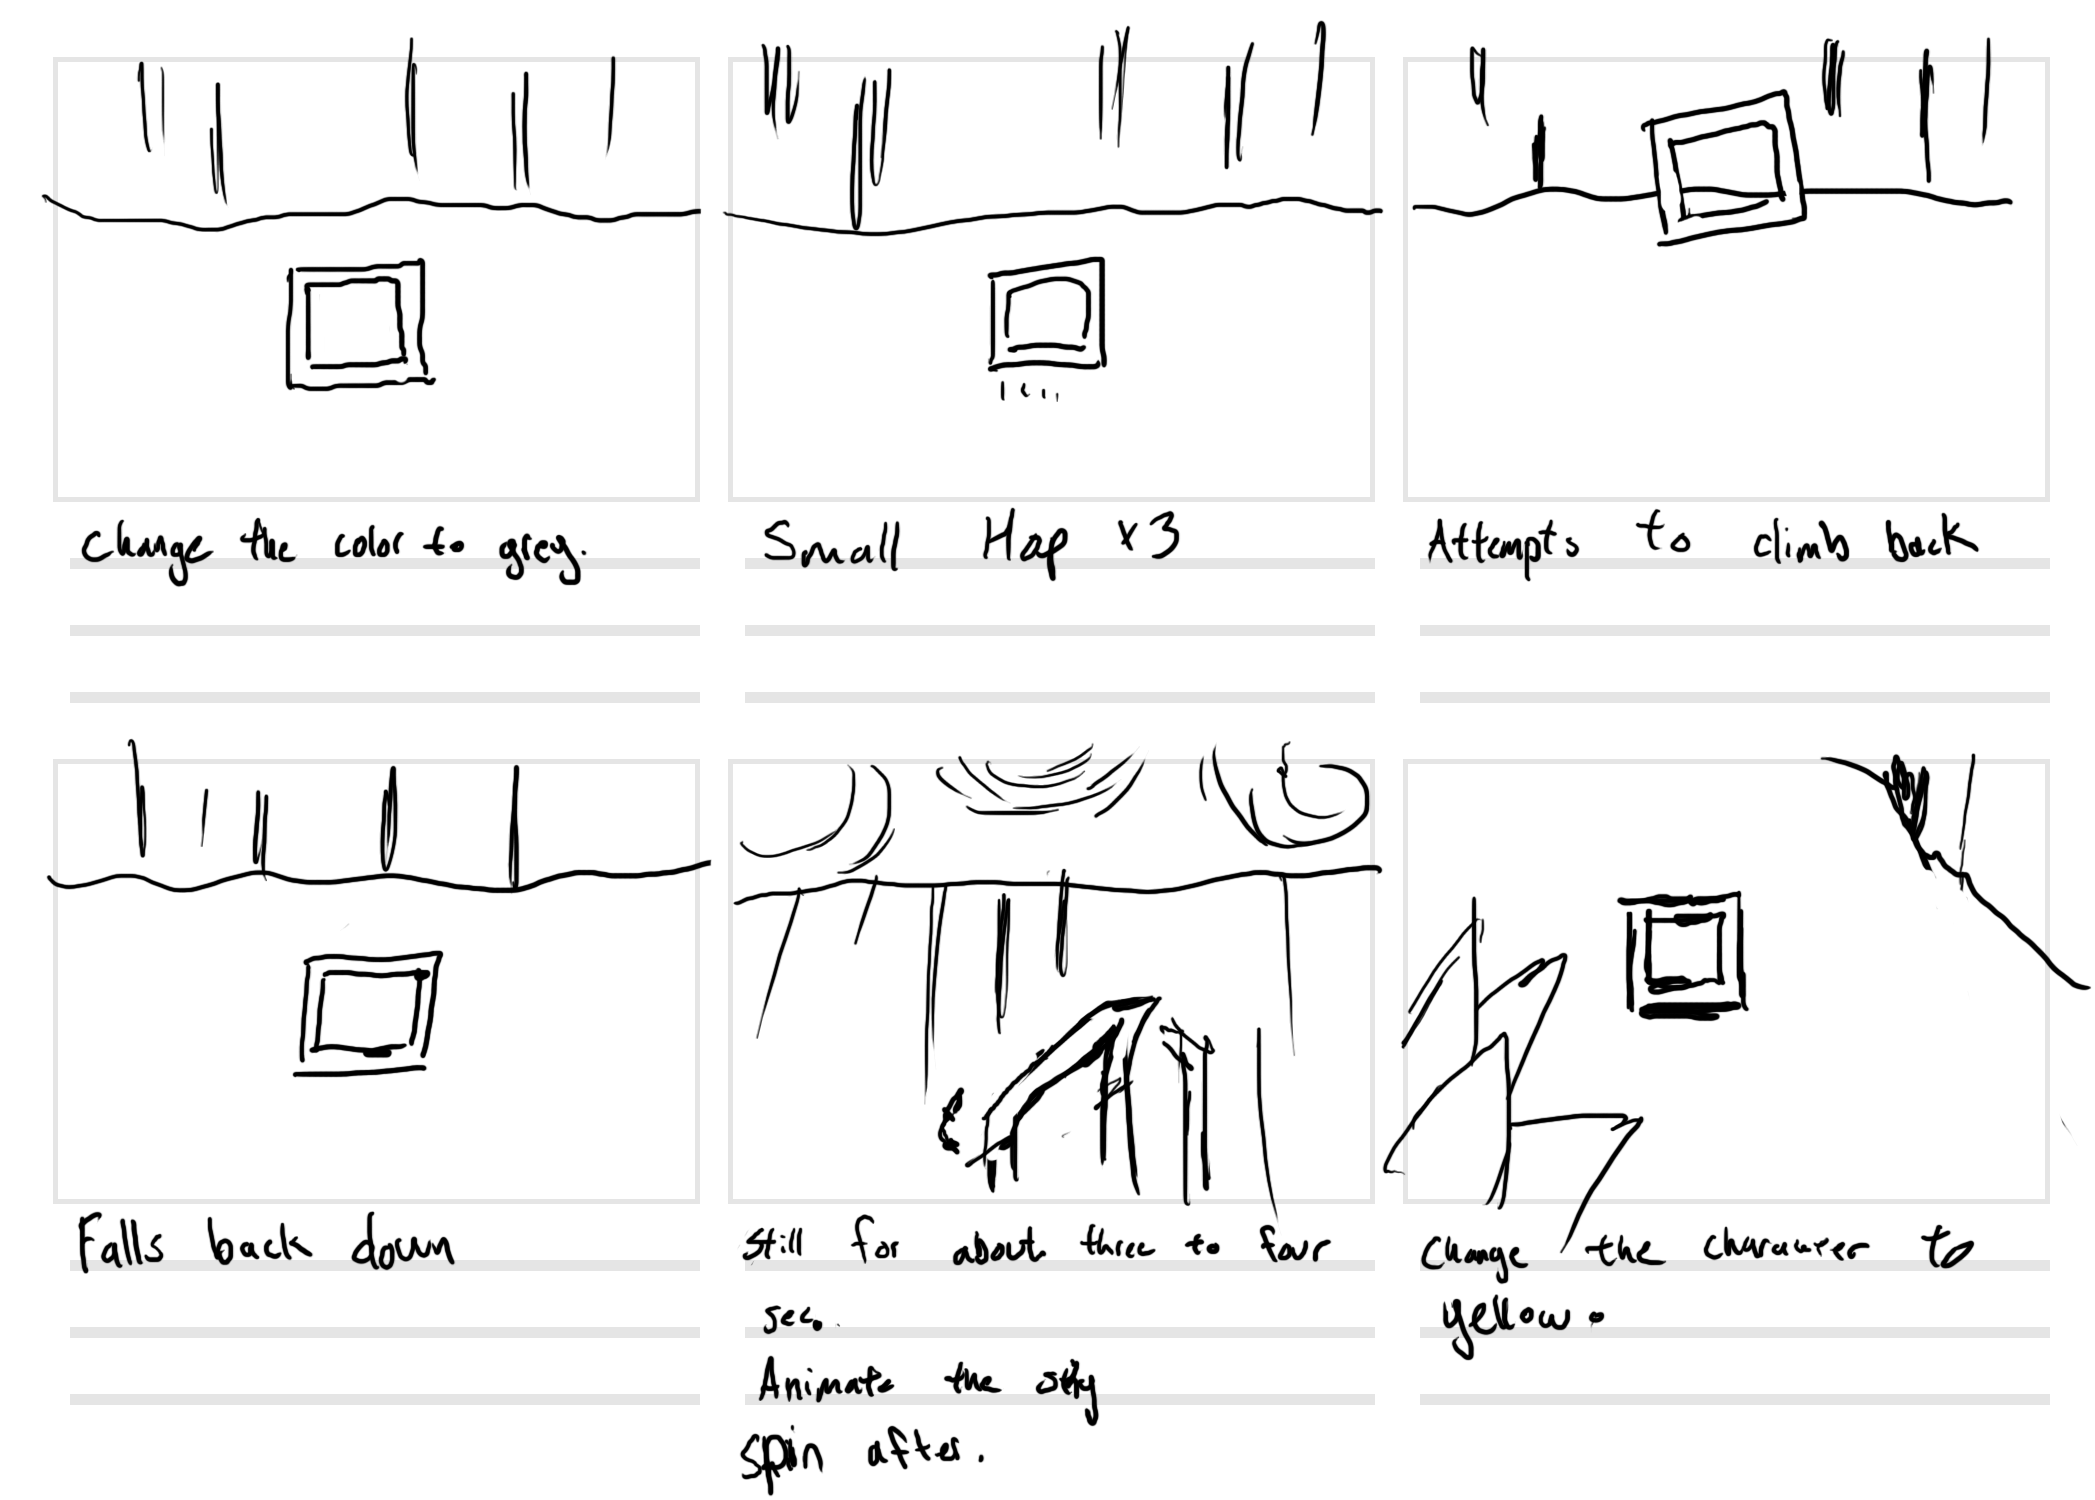 Change the color to grey.
Small Hop x3
Attempts to climb back
Falls back down
Still for about three to four
sec.
Animate the sky
spin after.
Change the character to
yellow.